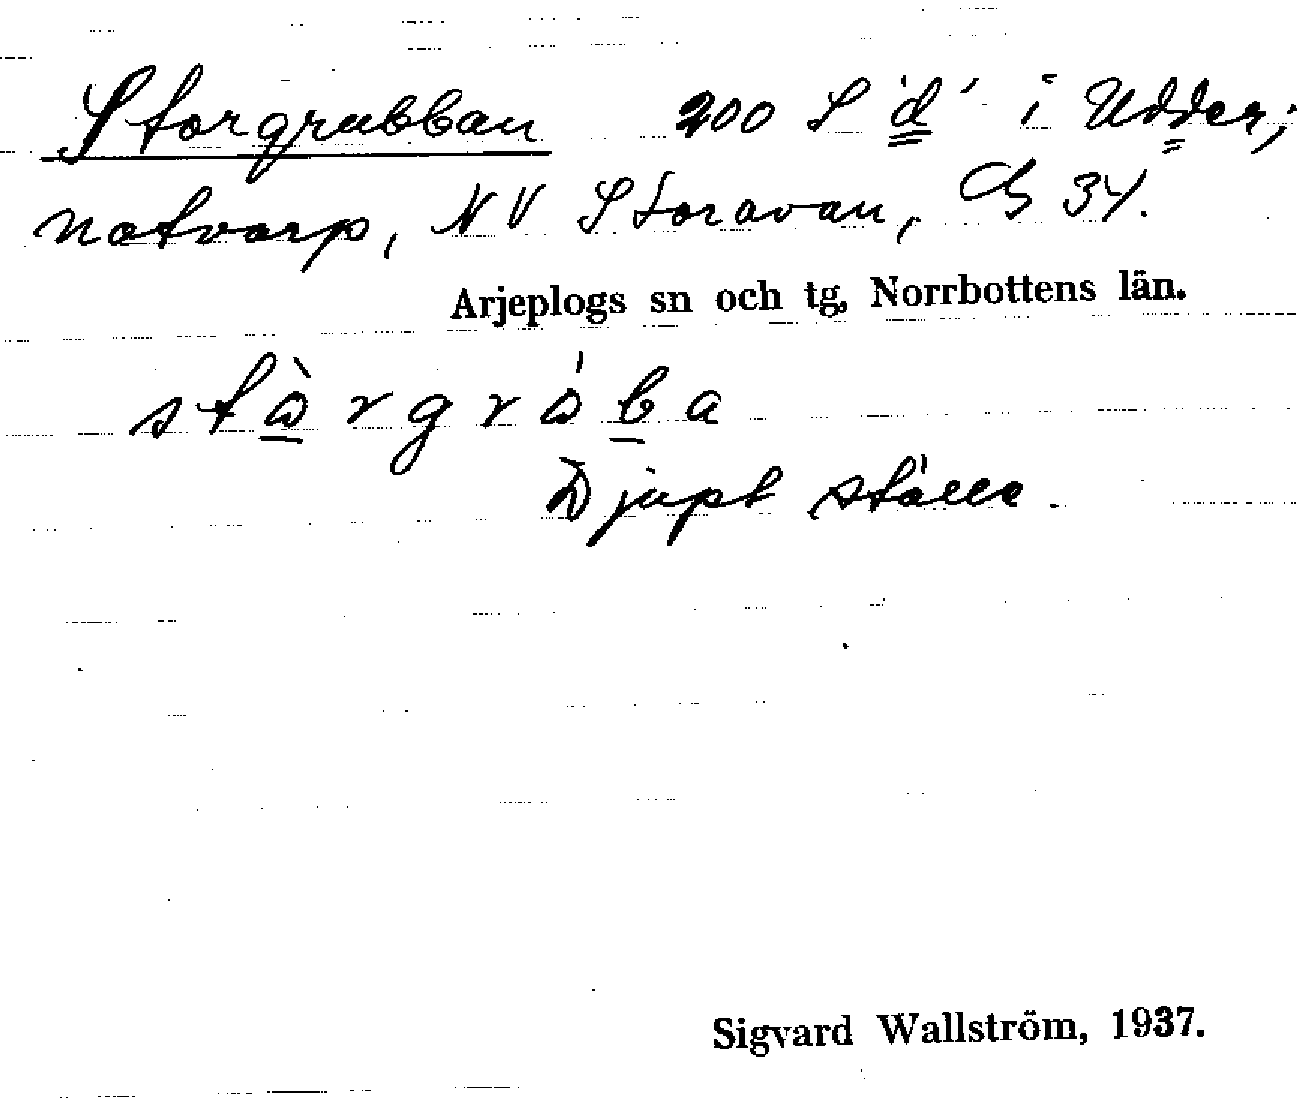 Storgrubban 200 S 'd' i Udder;
notvarp, NV Storavan, B 34.
Arjeplogs sn och tg, Norrbottens län.
stὼrgrώba
Djupt ställe.
Sigvard Wallström, 1937.